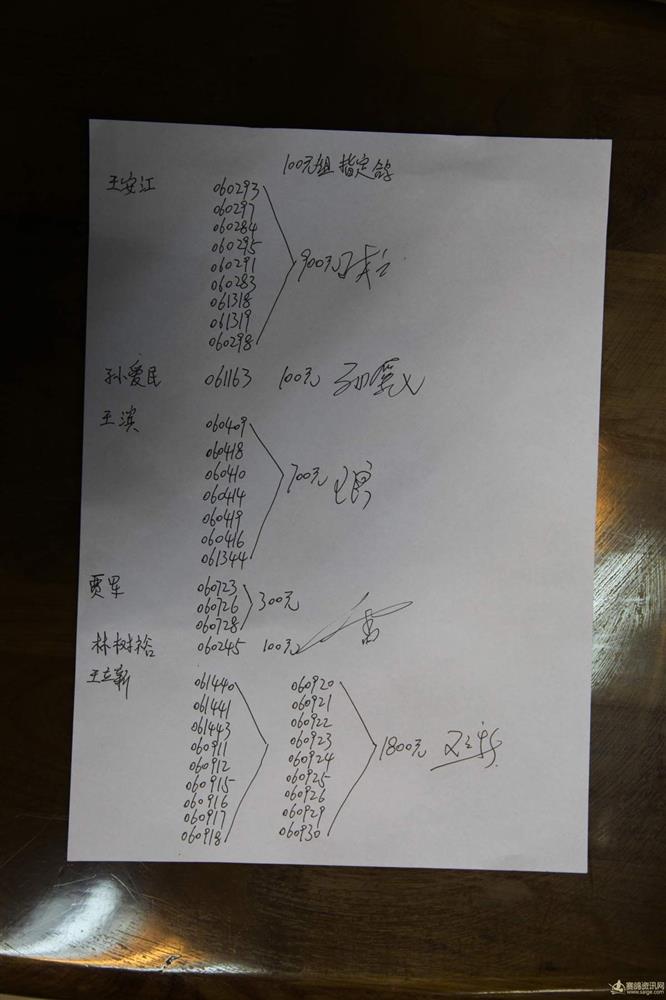 100元组 指定鸽
王安江 060293
060297
060284
060295
060291 900元
060283
061318
061319
060298
孙爱民 061163 100元 孙爱民
王滨 060409
060418
060410
060414 700元 王滨
060419
060416
061344
贾军 060723
060726 300元
060728
林树裕 060245 100元
王立新 061440 060920
061441 060921
061443 060922
060911 060923 1800元 王立新
060912 060924
060915 060925
060916 060926
060917 060929
060918 060930
赛鸽资讯网
www.saige.com